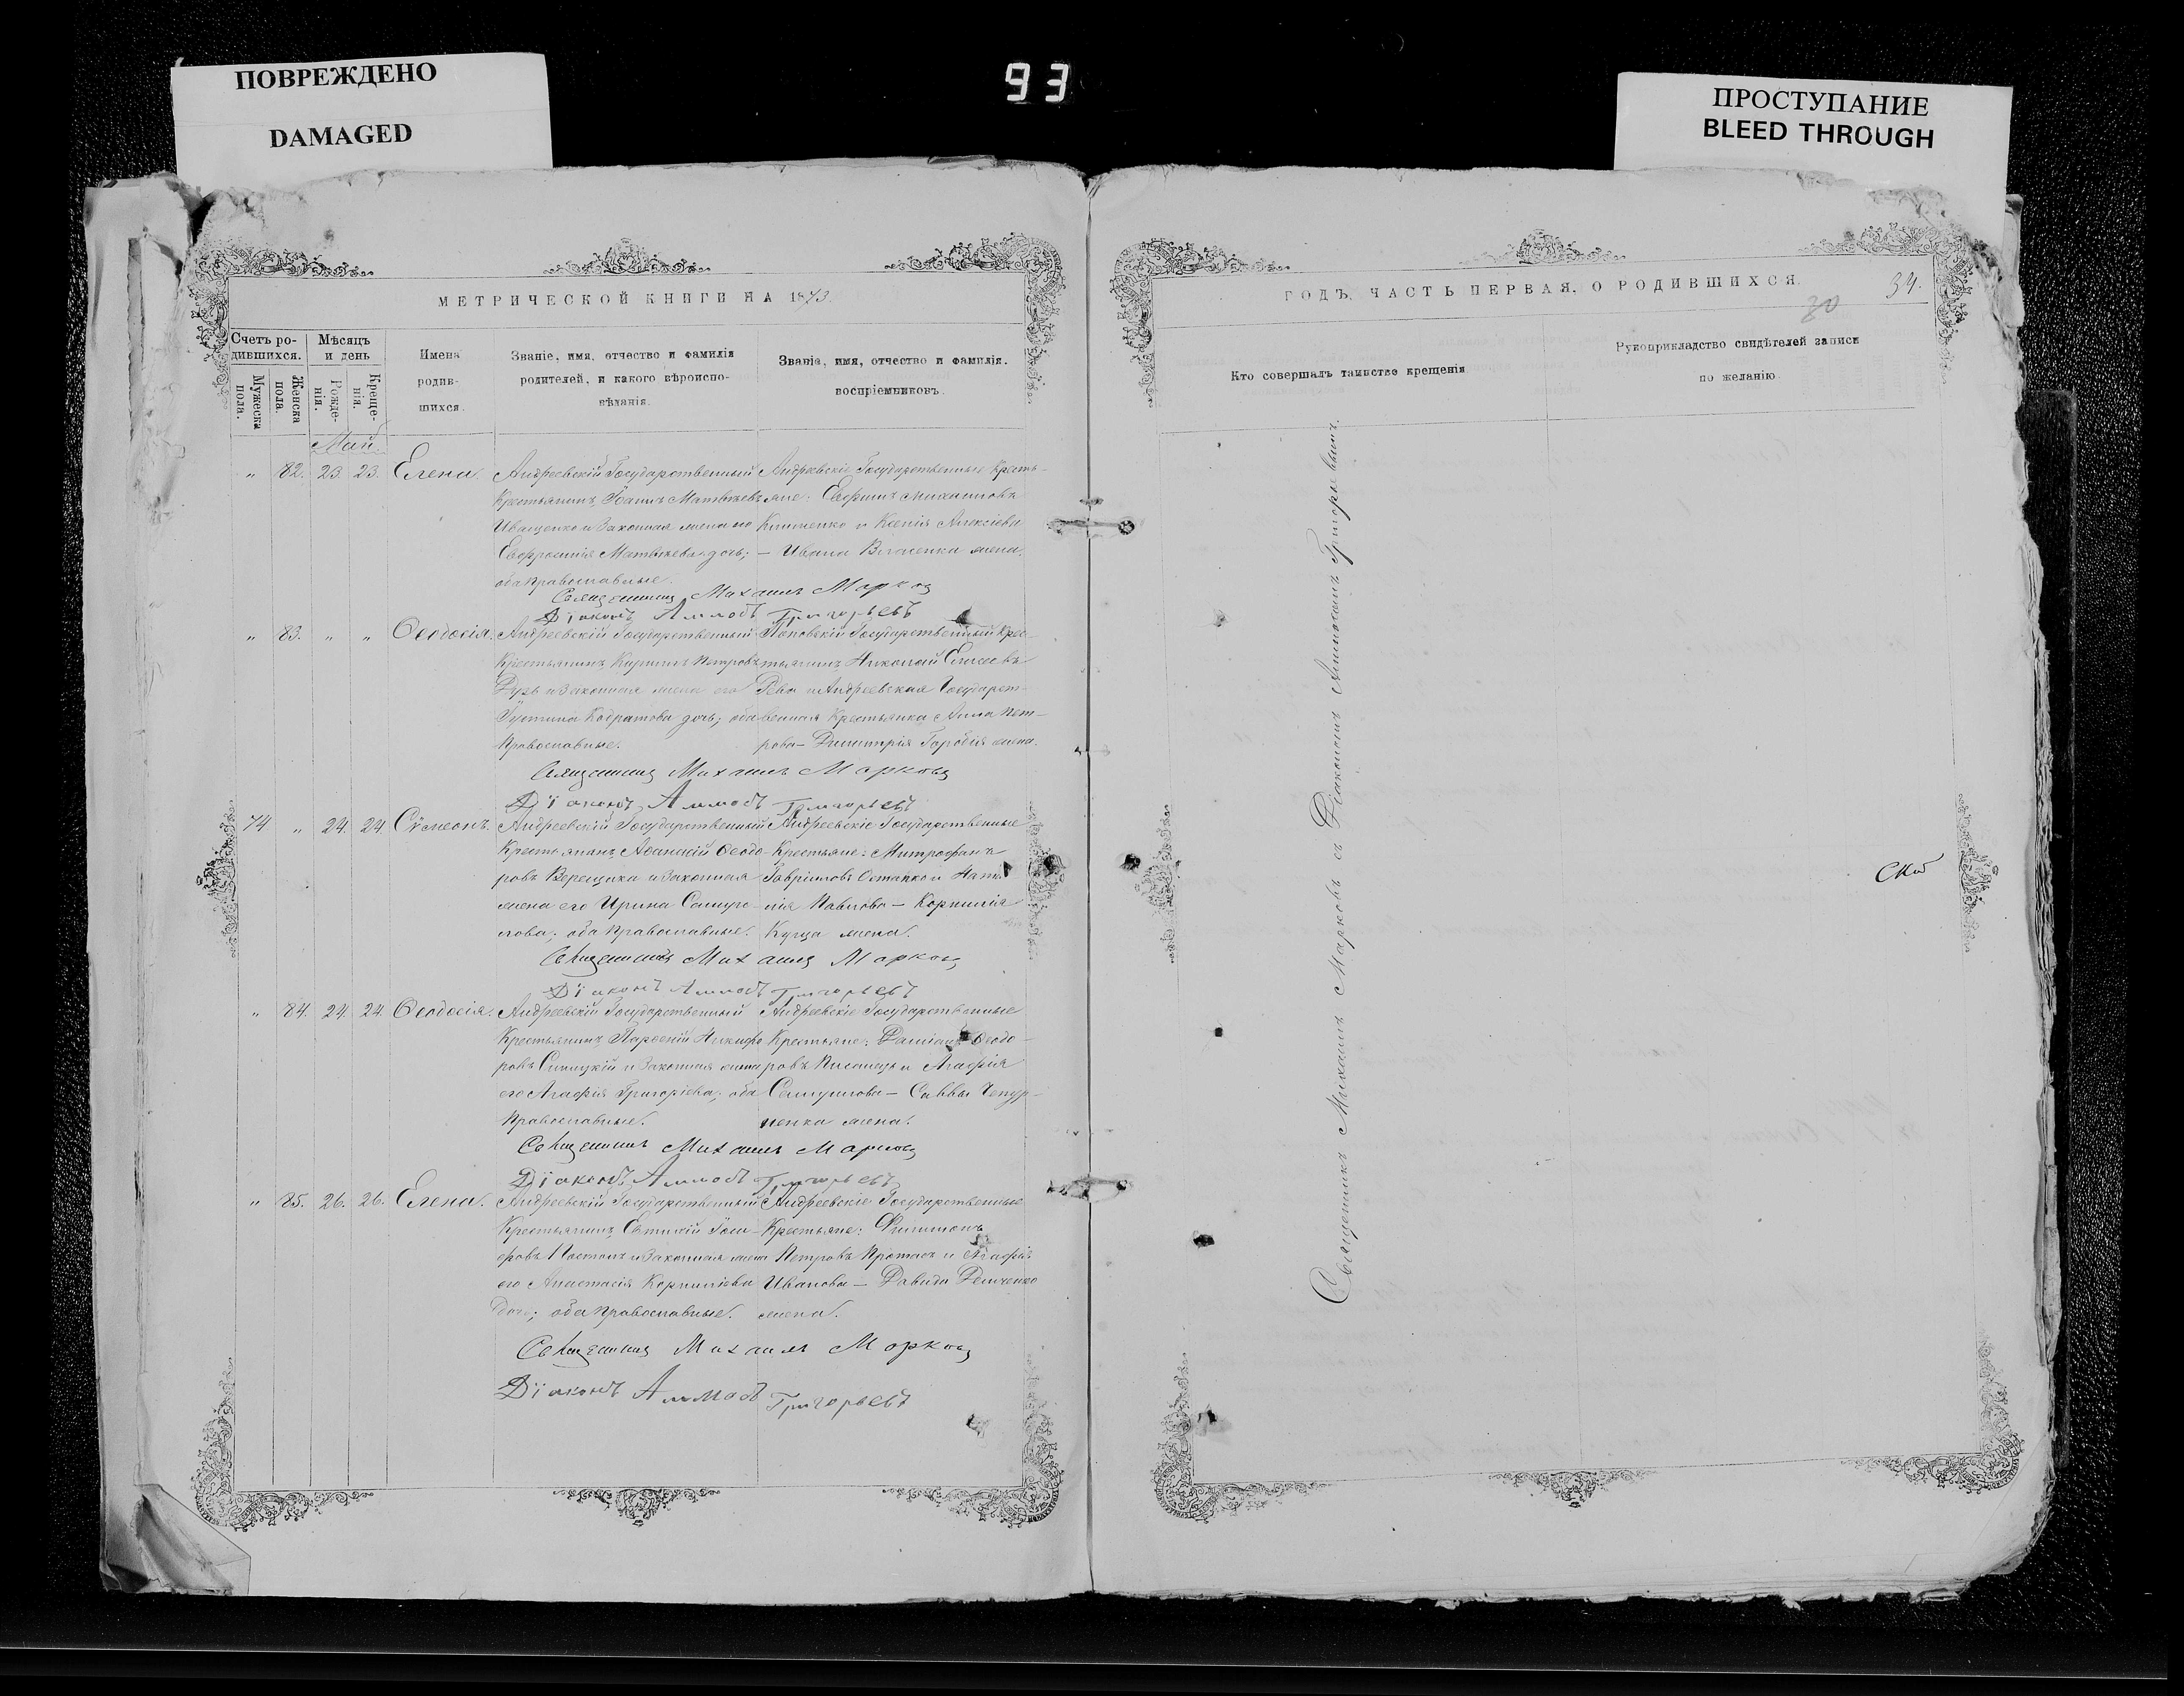 ПОВРЕЖДЕНО
DAMAGED
93
ПРОСТУПАНИЕ
BLEED THROUGH
МЕТРИЧЕСКОЙ КНИГИ НА 1873.
Счетъ ро-
дившихся.
Мужеска пола.
Женска пола.
Мѣсяцъ
и день
Рожде-
нія.
Креще-
нія.
Имена
родив-
шихся.
Званіе, имя, отчество и фамилія
родителей, и какого вѣроиспо-
вѣданія.
Званіе, имя, отчество и фамилія.
воспріемниковъ.
Май
" 82. 23. 23. Елена.
Андреевскій Государственный
Крестьянинъ Іоаннъ Матвѣевъ
Иващенко и Законная жена его
Евфросинія Матвѣева дочь; —
оба православные.
Андреевскіе Государственные Кресть-
яне: Михаиловъ
Клименко и Ксенія Алексіева
Ивана жена.
Священникъ Михаилъ Марковъ
Діаконъ Григорьевъ
" 83. " " Ѳеодосія.
Андреевскій Государственный
Крестьянинъ Кириллъ Петровъ
и Законная жена его
Іустина Кодратова дочь; оба
Православные.
Поповскій Государственный Крес-
тьянинъ Николай Елисеевъ
Рева и Андреевская Государст-
венная Крестьянка Анна Пет-
рова — Димитрія жена.
Священникъ Михаилъ Марковъ
Діаконъ Григорьевъ
74. " 24. 24. Сѵмеонъ.
Андреевскій Государственный
Крестьянинъ Аѳанасій Ѳеодо-
ровъ Верещака и Законная
жена его Ирина Самуи-
лова; оба православные.
Андреевскіе Государственные
Крестьяне: Митрофанъ
Гавріиловъ Остапко и
Павлова — Корнилія
Куща жена.
Священникъ Михаилъ Марковъ
Діаконъ Григорьевъ
" 84. 24. 24. Ѳеодосія.
Андреевскій Государственный
Крестьянинъ Парѳеній Никифо
ровъ Синицкій и Законная жена
его Агафія Григоріева; оба
Православные.
Андреевскіе Государственные
Крестьяне: Даміанъ Ѳеодо-
ровъ и Агафія
Самуилова — Саввы Чепур-
ненка жена.
Священникъ Михаилъ Марковъ
Діаконъ Григорьевъ
" 85. 26. 26. Елена.
Андреевскій Государственный
Крестьянинъ Евтихій Іоси-
фовъ и Законная жена
его Анастасія Корниліева
дочь; оба Православные.
Андреевскіе Государственные
Крестьяне: Филимонъ
Петровъ Протасъ и Агафія
Иванова — Давида Демченко
жена.
Священникъ Михаилъ Марковъ
Діаконъ Григорьевъ
ГОДЪ, ЧАСТЬ ПЕРВАЯ, О РОДИВШИХСЯ.
34.
30
Кто совершалъ таинство крещенія
Рукоприкладство свидѣтелей записи
по желанію
Священникъ Михаилъ Марковъ съ Діакономъ Григорьевымъ.